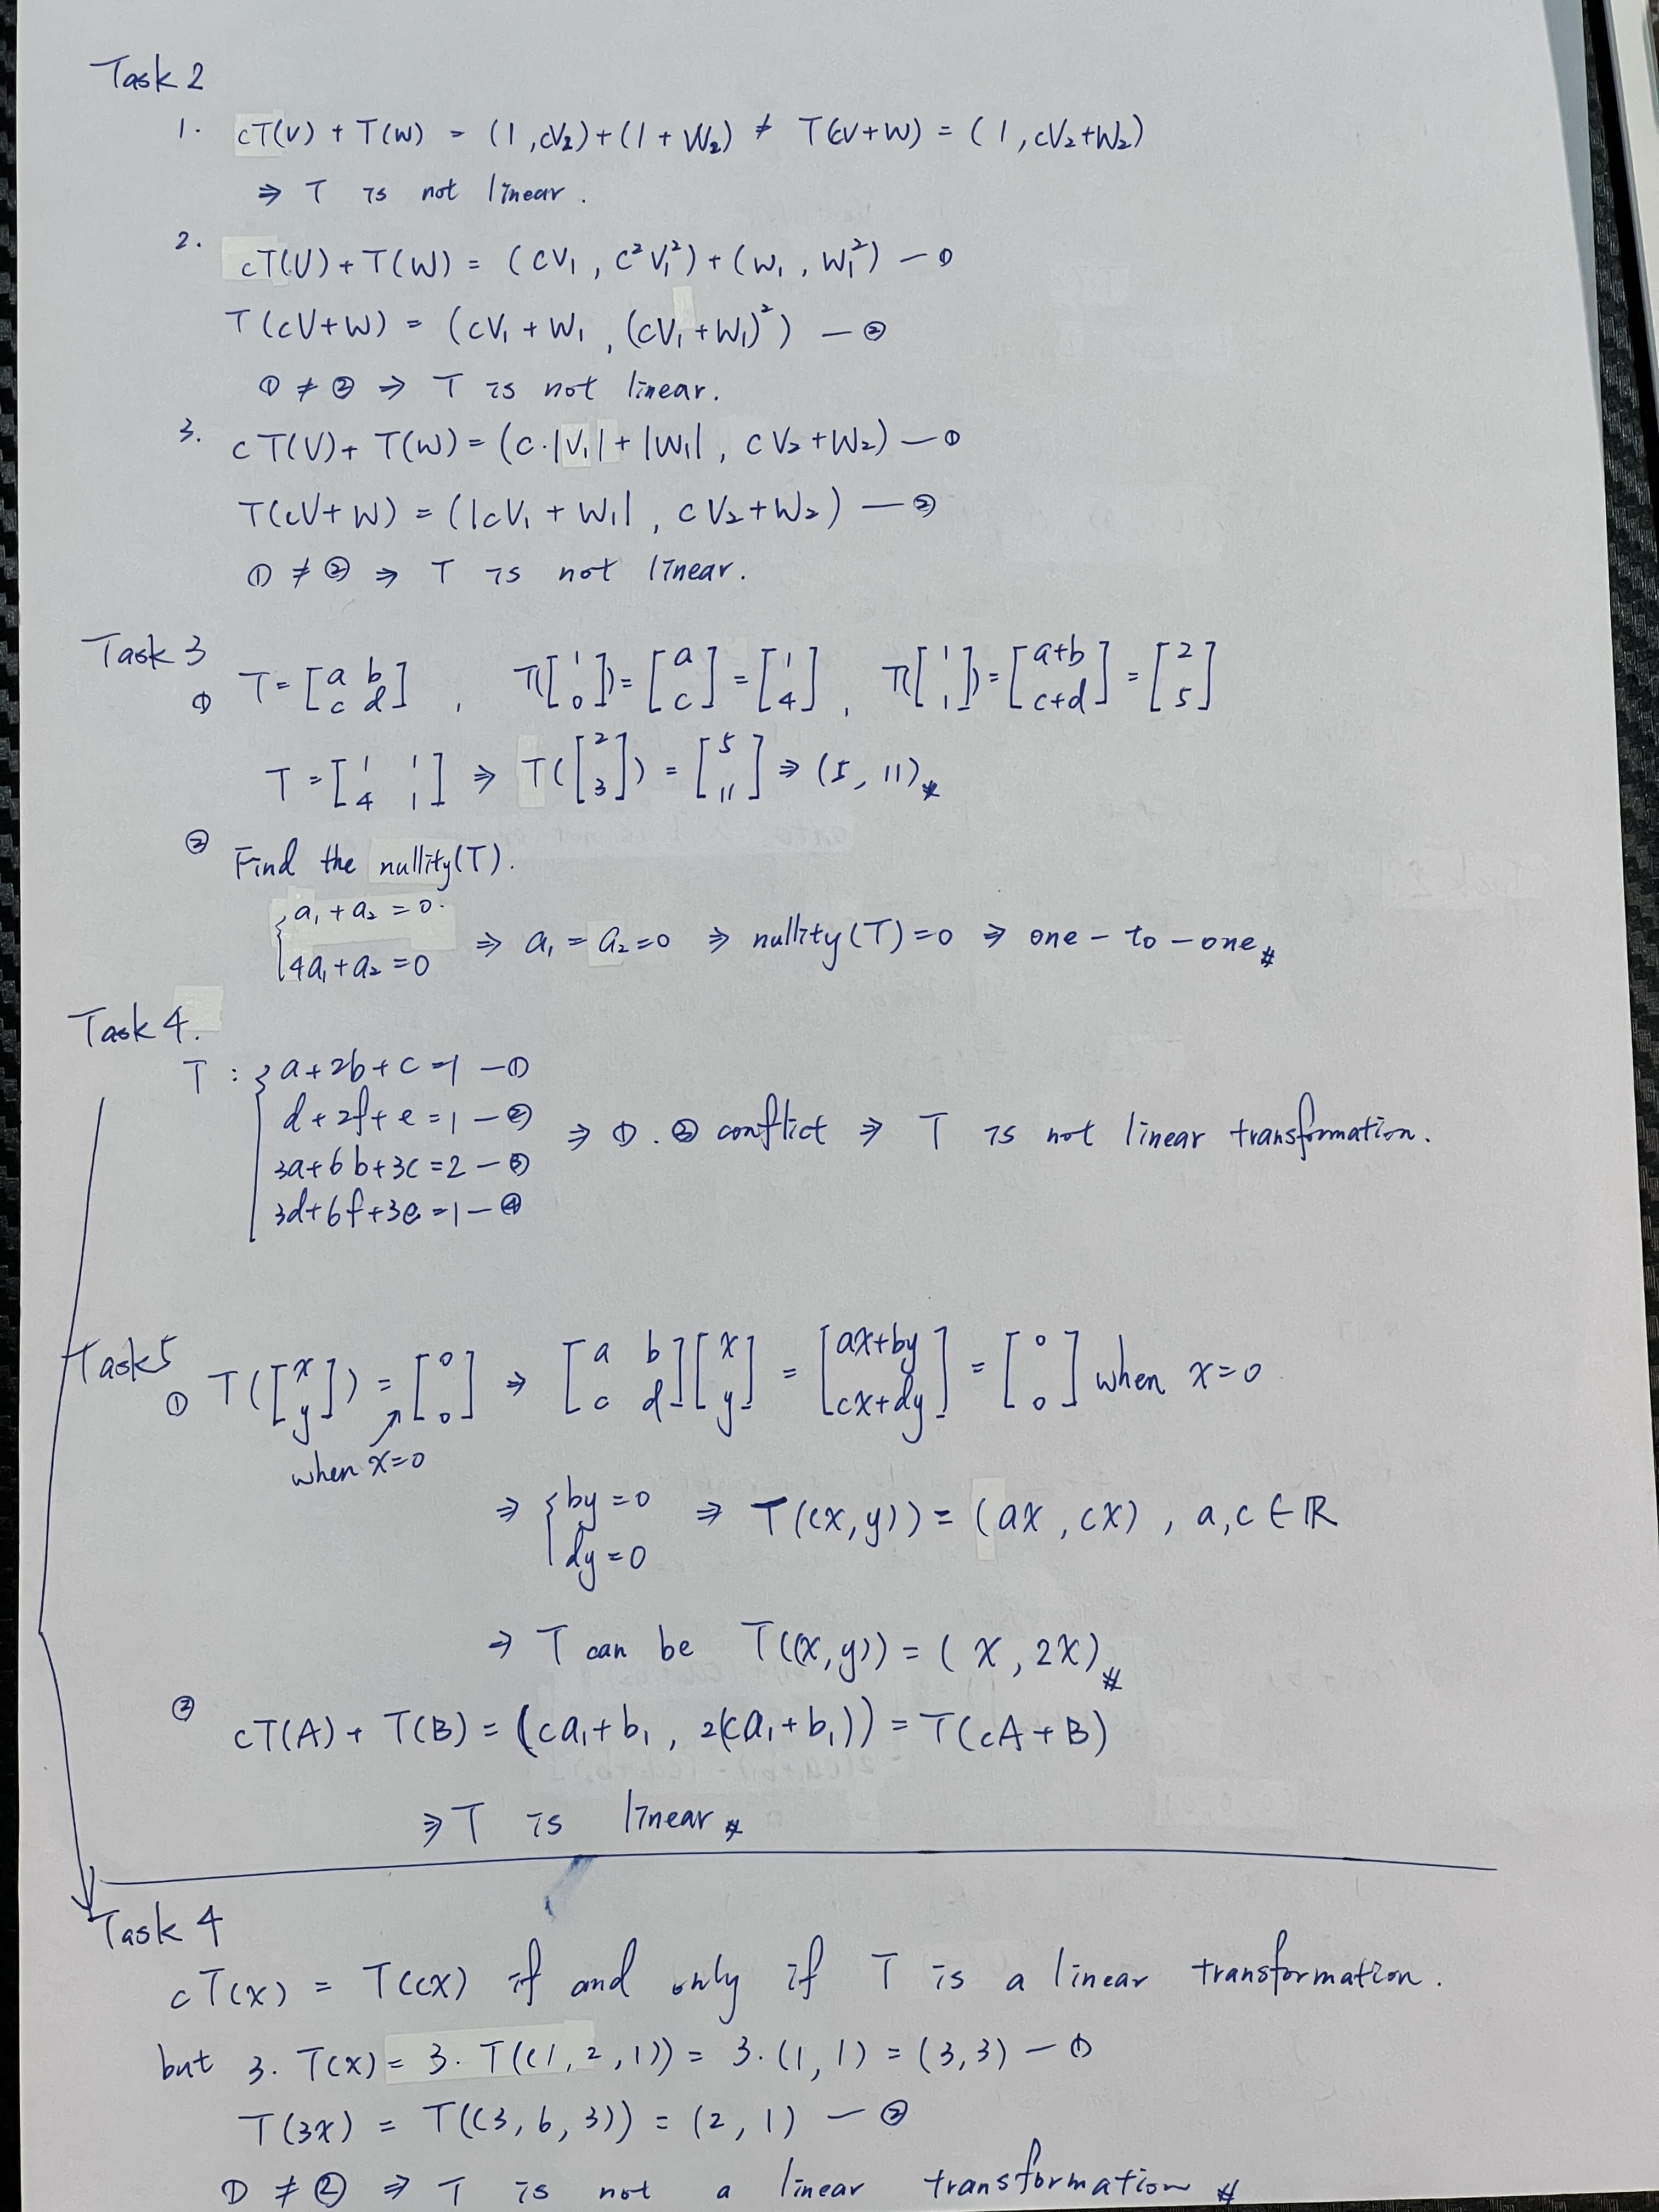 Task 2
1. cT(V) + T(W) = (1, cV₂) + (1 + W₂) ≠ T(cV+W) = (1, cV₂+W₂)
⇒ T is not linear.
2. cT(V) + T(W) = (cV₁, c²V₁²) + (W₁, W₁²) — ①
T(cV+W) = (cV₁ + W₁, (cV₁+W₁)²) — ②
① ≠ ② ⇒ T is not linear.
3. cT(V) + T(W) = (c·|V₁| + |W₁|, cV₂+W₂) — ①
T(cV+W) = (|cV₁ + W₁|, cV₂+W₂) — ②
① ≠ ② ⇒ T is not linear.
Task 3
① T = [a b; c d], T([1; 0]) = [a; c] = [1; 4], T([1; 1]) = [a+b; c+d] = [2; 5]
T = [1 1; 4 1] ⇒ T([2; 3]) = [5; 11] ⇒ (5, 11)#
② Find the nullity(T).
{a₁ + a₂ = 0.
4a₁ + a₂ = 0 ⇒ a₁ = a₂ = 0 ⇒ nullity(T) = 0 ⇒ one-to-one#
Task 4.
T : {a + 2b + c = 1 — ①
d + 2f + e = 1 — ② ⇒ ①.③ conflict ⇒ T is not linear transformation.
3a + 6b + 3c = 2 — ③
3d + 6f + 3e = 1 — ④
Task 5
① T([x; y]) = [0; 0] ⇒ [a b; c d][x; y] = [ax+by; cx+dy] = [0; 0] when x=0
when x=0
⇒ {by = 0
dy = 0 ⇒ T((x,y)) = (ax, cx), a, c ∈ ℝ
⇒ T can be T((x,y)) = (x, 2x)#
② cT(A) + T(B) = (ca₁+b₁, 2(ca₁+b₁)) = T(cA+B)
⇒ T is linear#
Task 4
cT(x) = T(cx) if and only if T is a linear transformation.
but 3·T(x) = 3·T((1,2,1)) = 3·(1,1) = (3,3) — ①
T(3x) = T((3,6,3)) = (2,1) — ②
① ≠ ② ⇒ T is not a linear transformation#